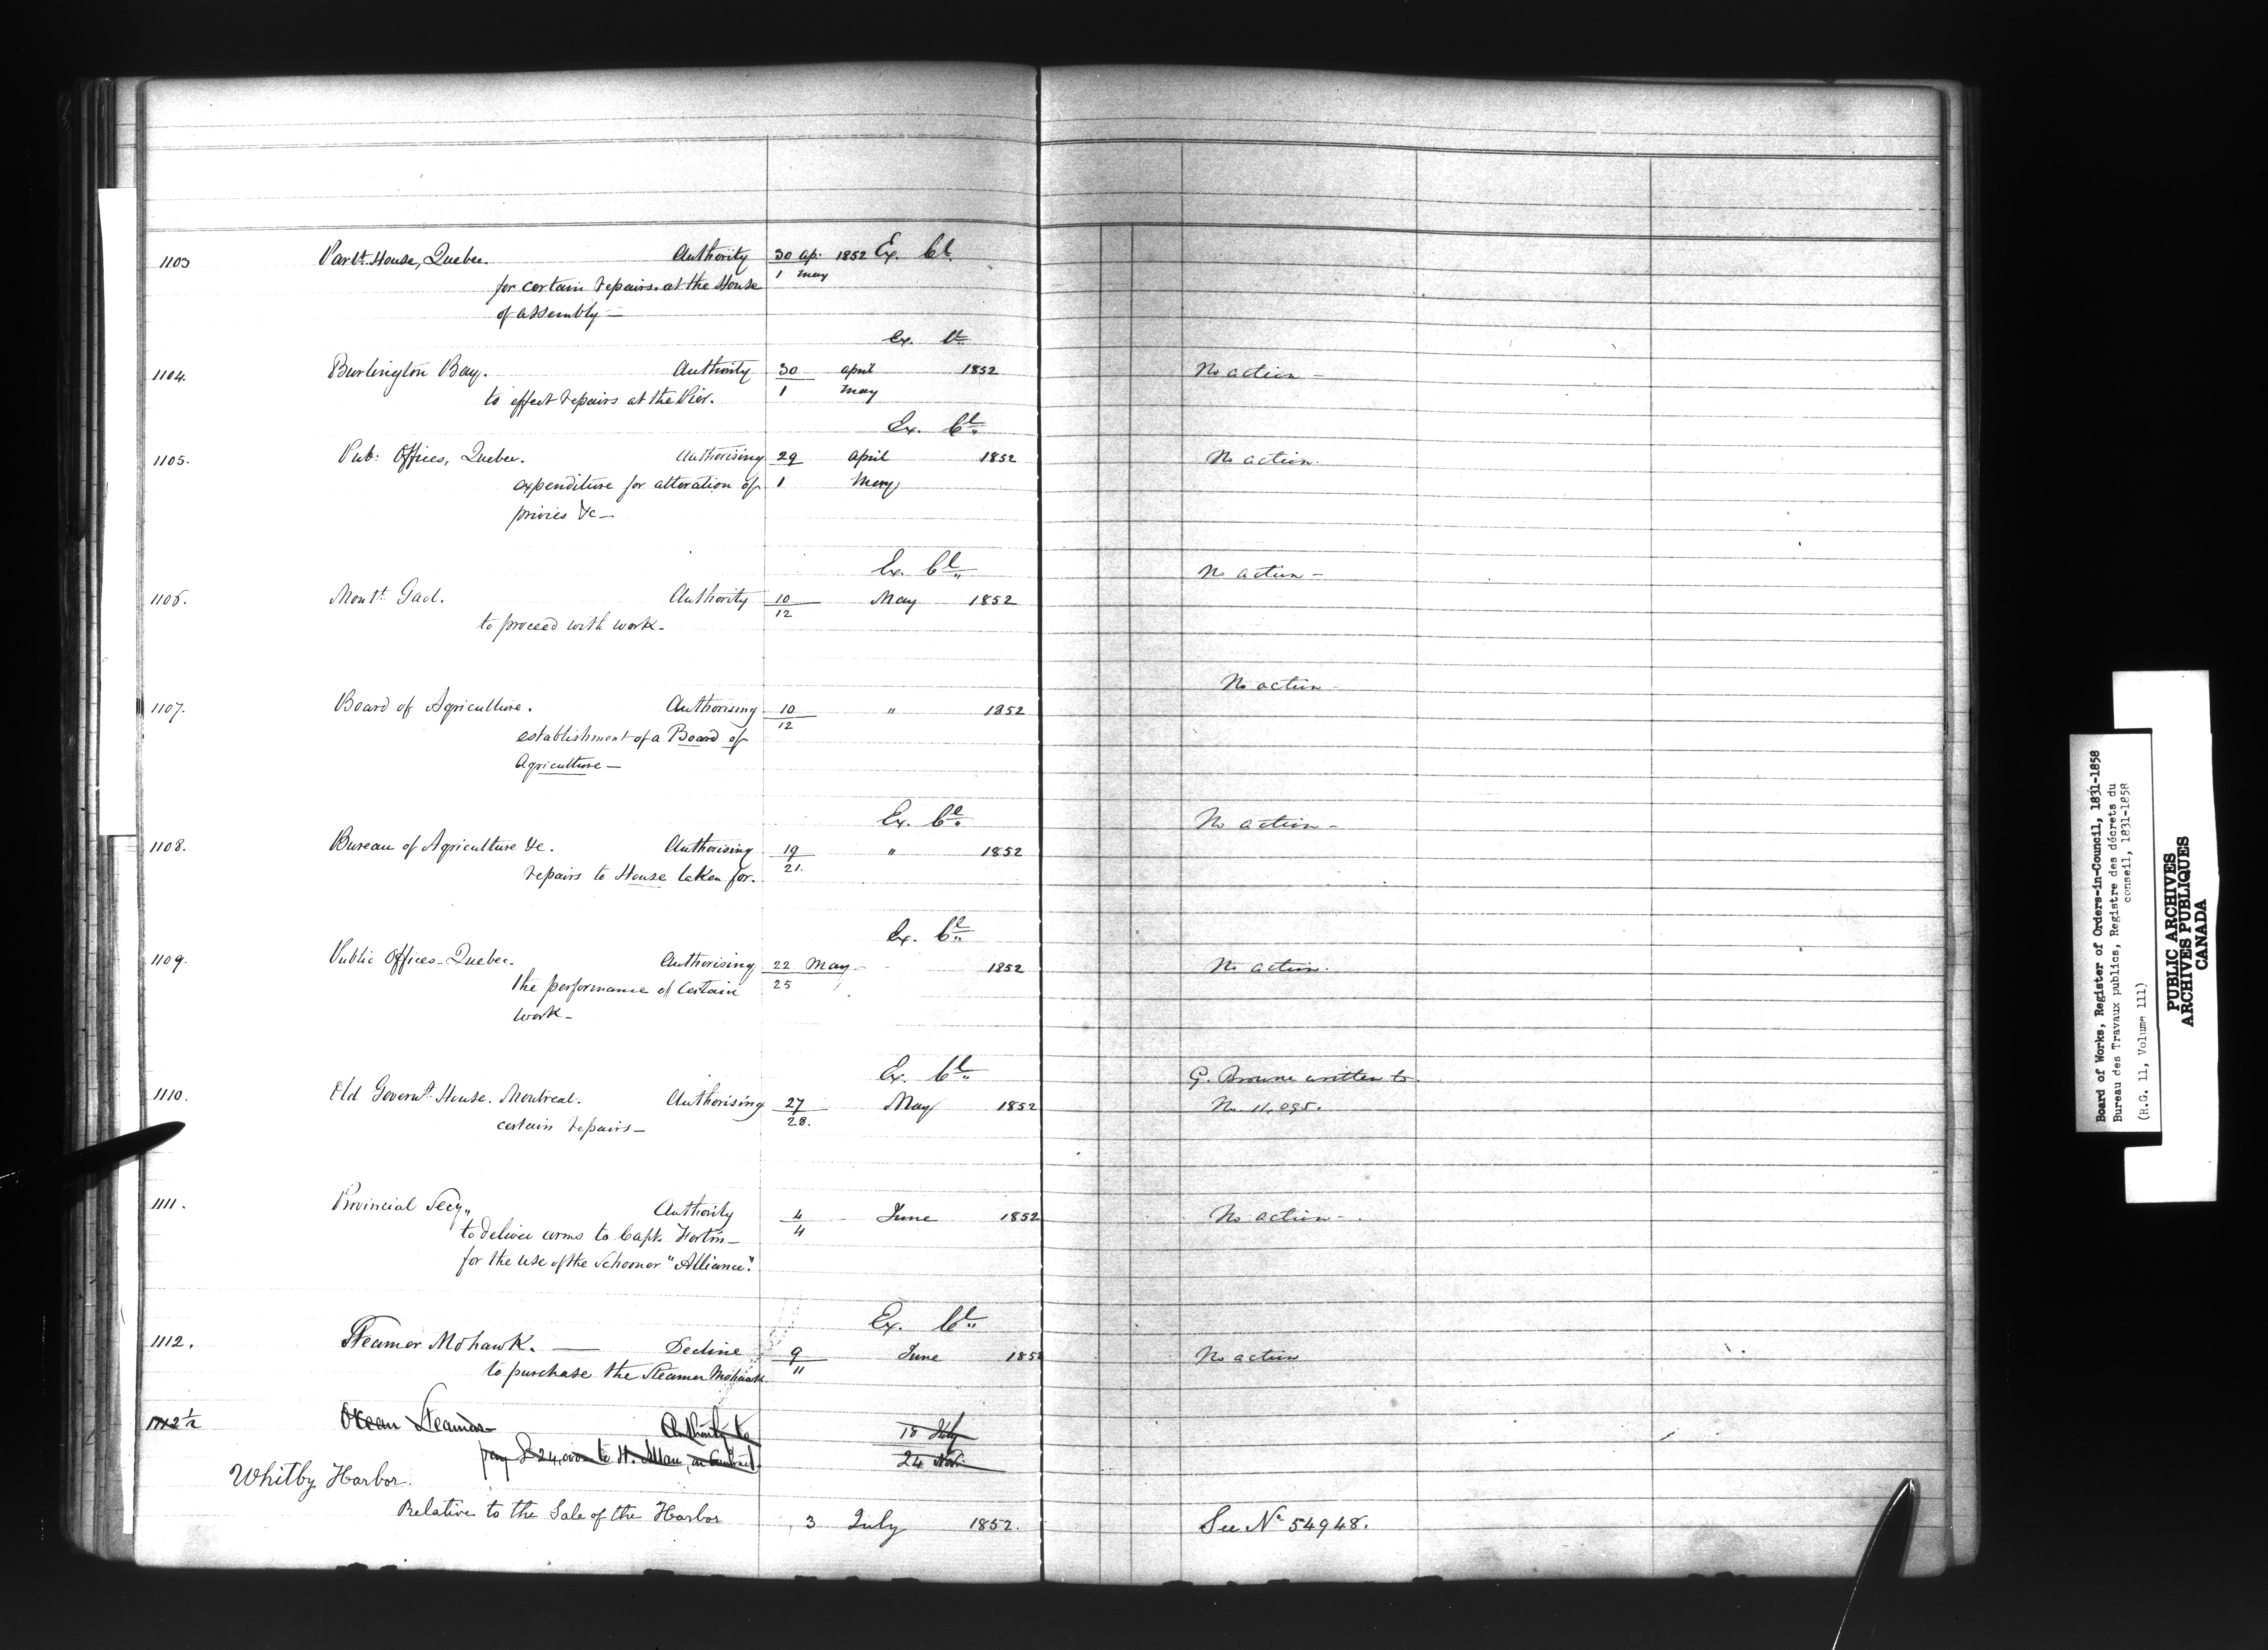 1103 Parlt. House, Quebec. Authority 30 Ap. 1852 Ex. Cl.
for certain repairs at the House 1 May
of Assembly —
Ex. Cl.
1104. Burlington Bay. Authority 30 April 1852 No action —
to effect repairs at the Pier. 1 May
Ex. Cl.
1105. Pub: Offices, Quebec. Authorising 29 April 1852 No action.
expenditure for alteration of 1 May
privies &c —
Ex. Cl. No action —
1106. Mont. Gaol. Authority 10 May 1852
to proceed with work — 12
No action
1107. Board of Agriculture. Authorising 10 " 1852
establishment of a Board of 12
Agriculture —
Ex. Cl. No action —
1108. Bureau of Agriculture &c. Authorising 19 " 1852
repairs to House taken for. 21.
Ex. Cl.
1109. Public Offices — Quebec. Authorising 22 May 1852 No action.
the performance of certain 25
work —
Ex. Cl. G. Browne written to
1110. Old Governt. House. Montreal. Authorising 27 May 1852 No 11,095.
certain repairs — 28.
1111. Provincial Secy. Authority 4 June 1852 No action —
to deliver arms to Capt. Fortin — 4
for the use of the Schooner "Alliance".
Ex. Cl.
1112. Steamer Mohawk. — Decline 9 June 1852 No action
to purchase the Steamer Mohawk 11
1112½ Ocean Steamers — Authority to 18 July
pay £24,000 to H. Allan, on Contract. 24 Nov.
Whitby Harbor.
Relative to the Sale of the Harbor 3 July 1852. See No 54948.
Board of Works, Register of Orders-in-Council, 1831-1858
Bureau des Travaux publics, Registre des décrets du
conseil, 1831-1858
(R.G. 11, Volume 111)
PUBLIC ARCHIVES
ARCHIVES PUBLIQUES
CANADA